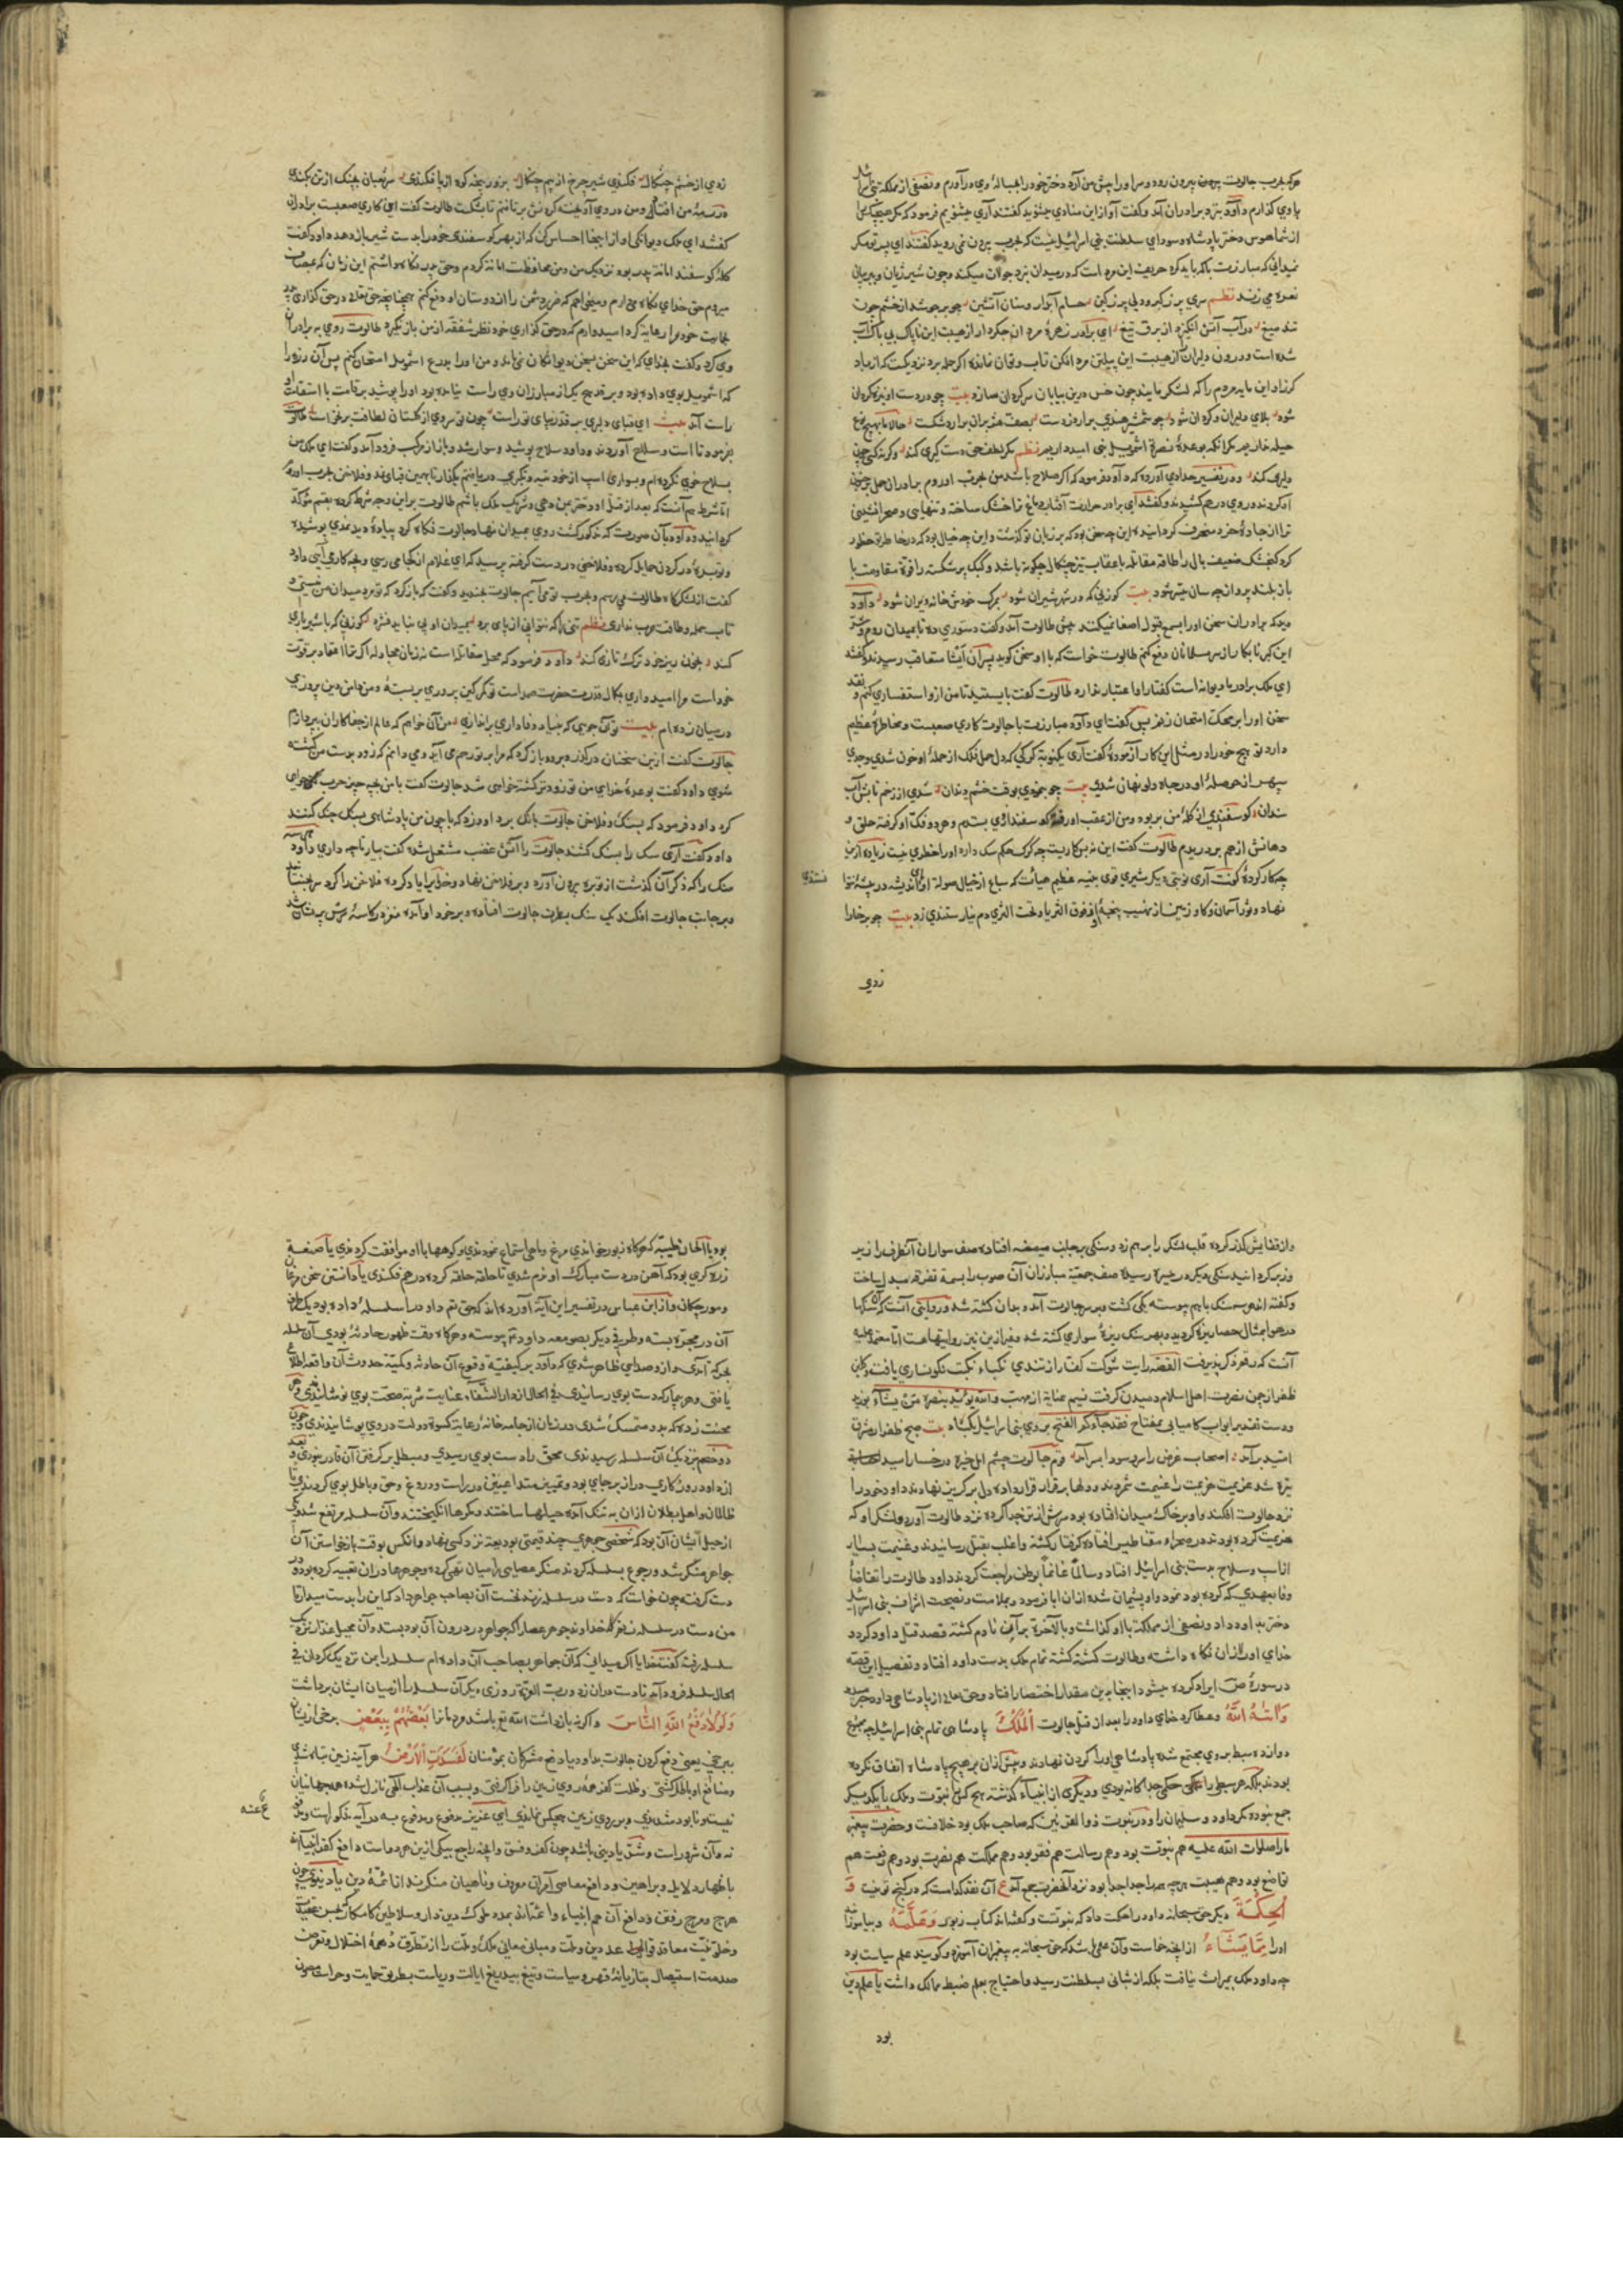 هرکه بحرب جالوت بیرون رود و سر او را پیش من آرد دختر خود را بحباله وی درآورم و نصفی از مملکت بنی اسرائیل
با وی گذارم داود نزد برادران آمد و گفت آواز این منادی میشنوید گفتند آری میشنویم فرمود که مگر هیچکس را
از شما هوس دختر پادشاه و سودای سلطنت بنی اسرائیل نیست که بحرب بیرون نمی روید گفتند ای پسر تو مگر
نمیدانی که مبارزت با که باید کرد حریف این مرد است که در میدان نبرد جولان میکند و چون شیر ژیان و ببر بیان
نعره می زند نظم سری پر ز کبر و دلی پر ز کین حسام آبدار و سنان آتشین چو بر جوشد از خشم چون
تند میغ در آب آتش انگیزد از برق تیغ ای برادر زهره مردان جگردار از هیبت این ناپاک بی باک آب
شده است و درون دلیران از هیبت این پیلتن مرد افکن تاب و توان نمانده اگر حمله برد نزدیکست که از باد
گرز او این مایه مردم را که لشکر مایند چون خس درین بیابان سرگردان سازد بیت چو در دست او نیزه گردان
شود بلای دلیران و گردان شود چو شمشیر هندی برآرد ز دست بصف هژبران برآرد شکست حالا ما بهیچ نوع
حیله نداریم مگر آنکه بوعده نصرة اشمویل نبی امیدواریم نظم مگر لطف حق دستگیری کند
دلیری کند و در تفسیر حدادی آورده که داود فرمود که اگر صلاح باشد من بحرب او روم برادران حمل بر جنون
او کردند و روی درهم کشیدند و گفتند ای برادر حرارت آفتاب دماغ ترا خشک ساخته و تنهایی و صحرانشینی
ترا از جاده خرد منحرف گردانیده این چه سخن بود که بر زبان تو گذشت و این چه خیال بود که در خاطر تو خطور
کرد گنجشک ضعیف بال را طاقه مقابله با عقاب تیز چنگال چگونه باشد و کبک پرشکسته را قوة مقاومت با
باز بلند پرواز چه سان میسر شود بیت گوزنی که در شهر شیران شود بمرگ خودش خانه ویران شود داود
دید که برادران سخن او را بسمع قبول اصغا نمیکنند پیش طالوت آمد و گفت دستوری ده تا بمیدان روم و شر
این گبر نابکار از سر مسلمانان دفع کنم طالوت خواست که با او سخن گوید برادران آیشا متعاقب رسیدند و گفتند
ای ملک برادر ما دیوانه است گفتار او اعتبار ندارد طالوت گفت بایستید تا من ازو استفساری کنم و نقد
سخن او را بر محک امتحان زنم پس گفت ای داود مبارزت با جالوت کاری صعبست و مخاطره عظیم
دارد تو هیچ خود را در مثل این کار آزموده گفت آری یکنوبة گرگی که دل حمل فلک از حمله او خون شدی و جدی
سپهر از حوصله او در چاه دلو نهان شدی بیت چو بنمودی بوقت خشم دندان شدی از زخم تابش آب
سندان گوسفندی از گله من بربود و من از عقب او رفتم که گوسفند ازوی بستدم و هر دو فک او گرفته حلق و
دهانش از هم بردریدم طالوت گفت این نه بس کاریست چه گرگ حکم سگ دارد او را خطری نیست زیاده ازین
چه کار کرده گفت آری نوبتی دیگر شیری قوی جثه عظیم هیأت که سباع از خیال صولة او اندیشه در بیشه
نهاد و ثور آسمان و گاو زمین از نهیب پنجه او فوق الثریا و تحت الثری دم نیارستندی زد بیت چو بر خارا
زدی
زدی از خشم چنگال فکندی شیر چرخ از بیم چنگال بزور پنجه کوه از پا فکندی سر پیلان بچنگ از تن بکندی
در رمه من افتاد و من در وی آویخته گردنش برتافتم تا بشکست طالوت گفت این کاری صعبست برادران
گفتند ای ملک دیوانگی او از اینجا احساس کن که از بهر گوسفندی خود را بدست شیر باز دهد داود گفت
گله گوسفند امانة پدر بود نزدیک من و من محافظت امانة کردم و حق پدر نگاه داشتم این زبان که بمصاف
میروم حق خدای نگاه میدارم و میخواهم که ضرر دشمن را از دوستان او دفع کنم همچنانچه حق تعالی در حق گذاری پدر
بحمایت خود مرا رعایة کرد امیدوارم که در حق گذاری خود نظر شفقه از من باز نگیرد طالوت روی به برادران
وی کرد و گفت بخدای که این سخن بسخن دیوانگان نمی ماند و من او را بدرع اشمویل امتحان کنم پس آن زره را
که اشمویل بوی داده بود و بر قد هیچ یک از مبارزان وی راست نیامده بود او را پوشید بر قامت با استقامت او
راست آمد بیت ای قبای دلبری بر قد زیبای تو راست چون تو سروی از گلستان لطافت برنخاست طالوت
بفرمود تا اسب و سلاح آوردند و داود سلاح بپوشید و سوار شد و باز از مرکب فرود آمد و گفت ای ملک من
بسلاح خوی نکرده ام و بسواری اسپ از خود تنبه و تکبری دریافتم بگذار تا بهمین قبای نمد و فلاخن بحرب او روم
اما شرط هم آنست که بعد از قتل او دختر بمن دهی و شریک ملک باشم طالوت برین وجه شرط کرده بقسم موکد
گردانید و داود بآن صورت که مذکور گشت روی بمیدان نهاد جالوت نگاه کرد پیاده دید نمدی پوشیده
و توبره در گردن حمایل کرده و فلاخنی در دست گرفته پرسید که ای غلام از کجا می رسی و بچه کار می آیی داود
گفت از لشکرگاه طالوت می رسم و بحرب تو می آیم جالوت بخندید و گفت که باز گرد که تو مرد میدان من نیستی و
تاب حمله و طاقت حرب نداری نظم تنی را که نتوانی از پای برد بمیدان او پی نباید فشرد گوزنی که با شیر بازی
کند بخون ریز خود ترکتازی کند داود فرمود که محل مقاتله است نه زبان مجادله اگر ترا اعتقاد بر قوت
خود است مرا امیدواری بکمال قدرت حضرت صمد است تو کمر کین پروری بر بستة و من دامن دین پروری
در میان زده ام بیت تو آن جویی که بنیاد وفاداری براندازی من آن خواهم که عالم از جفاکاران بپردازم
جالوت گفت ازین سخنان درگذر و برو باز گرد که مرا بر تو رحم می آید و می دانم که زود بدست من کشته
شوی داود گفت بوعده خدای من تو زودتر کشته خواهی شد جالوت گفت با من بچه چیز حرب خواهی
کرد داود فرمود که بسنگ و فلاخن جالوت بانگ برد او زد که با چون من پادشاهی بسنگ جنگ کنند
داود گفت آری سگ را بسنگ کشند جالوت را آتش غضب مشتعل شده گفت بیار تا چه داری داود سه
سنگ را که ذکر آن گذشت از توبره بیرون آورد و بر فلاخن نهاد و خدایرا یاد کرده فلاخن را گرد سر بجنبانید
و بر جانب جالوت افکند یک سنگ بطرف جالوت افتاده و بر خود او آمده مغز در کاسه سرش پریشان شد
و از قفایش گذر کرده قلب لشکر را برهم زد و سنگی بر جانب میمنه افتاده صف سواران آنطرف را زیر
و زبر گردانید سنگی دیگر در میسره رسیده صف جمعیة مبارزان آن صوب را بسمة تفرقه مبدل ساخت
و گفته اند هر سه سنگ با هم پیوسته یکی گشت و بر سر جالوت آمد و بدان کشته شد و روایتی آنست که سنگها
در هوا مثال حصا ریزه گردید و بهر سنگ ریزه سواری کشته شد و غیر ازین نیز روایتها هست اما معتمد علیه
آنست که رقم ذکر پذیرفت القصه رایت شوکت کفار از تندی نکباء نکبت نگونساری یافت و گلبن
ظفر از چمن نصرت اهل اسلام دمیدن گرفت نسیم عنایة از مهب والله یؤید بنصره من یشاء بوزید
و دست تقدیر ابواب کامیابی بمفتاح فقد جاءکم الفتح بر روی بنی اسرائیل بگشاد بیت صبح ظفر از مشرق
امید برآمد اصحاب غرض را سر سودا بسر آمد قوم جالوت چشم امل خیره و رخسار امید
تیره شد عزیمت هزیمت را غنیمت شمردند و دلها بر قرار قرار داده دل بر گریز نهادند و داود خود را
نزد جالوت افکند و او بر خاک میدان افتاده بود سرش از تن جدا کرده نزد طالوت آورد و لشکر او که
هزیمت کرده بودند در صحراء مغناطیس افتاده گرفتار گشته و اغلب بقتل رسانیدند و غنیمت بسیار
از اسب و سلاح بدست بنی اسرائیل افتاد و سالما غانما بوطن مراجعت کردند داود طالوت را تقاضا
وفا بعهدی که کرده بود نمود و او پشیمان شده از آن ابا فرمود و بملامت و نصیحت اشراف بنی اسرائیل
دختر بداود داد و نصفی از مملکة با او گذاشت و بالآخره بر آن نادم گشته قصد قتل داود کرد و
خدای او را از آن نگاه داشته و طالوت کشته گشته تمام ملک بدست داود افتاد و تفصیل این قصه
در سوره ص ایراد کرده میشود اینجا بدین مقدار اختصار افتاد و حق تعالی از پادشاهی داود خبر میدهد
وَآتَیهُ اللّهُ و عطا کرد خدای داود را بعد از قتل جالوت الْمُلْكَ پادشاهی تمام بنی اسرائیل چه مجموع
دوازده سبط بر وی مجتمع شده پادشاهی او را گردن نهادند و پیش از آن بر هیچ پادشاه اتفاق نکرده
بودند بلکه هر سبطی را ملکی حکمی جداگانه بودی و دیگری از انبیاء گذشته هیچ کس را نبوت و ملک با یکدیگر
جمع نبوده مگر داود و سلیمان را و در نبوت ذوالقرنین که صاحب ملک بود خلافست و حضرت پیغمبر
ما را صلوات الله علیه هم نبوت بود و هم رسالت هم فقر بود و هم مملکت هم نصرت بود و هم رفعت هم
تواضع بود و هم هیبت هرچه همه را جدا جدا بود نزد آنحضرت جمع آمد ع آن نقد کداست که در گنج تو نیست وَ
الْحِكْمَةَ دیگر حق سبحانه داود را حکمت داد که نبوتست و گفته اند کتاب زبور وَعَلَّمَهُ و بیاموزانید
او را مِمَّا یَشَاءُ از آنچه خواست و آن علمی شد که حق سبحانه به پیغمبران آموزد و گویند علم سیاست بود
چه داود ملک بمیراث نیافت بلکه از شبانی بسلطنت رسید و احتیاج بعلم ضبط ممالک داشت یا علم دین
بود
بود یا الحان طیبه که هرگاه زبور خواندی مرغ و ماهی استماع نمودندی و کوهها با او موافقت کردندی یا صنعة
زره گری بود که آهن در دست مبارک او نرم شدی تا حلقه حلقه کرده درهم فکندی یا دانستن سخن مرغان
و مورچگان و از ابن عباس در تفسیر این آیة آورده اند که حق تعالی داود را سلسله داده بود یک طرف
آن در مجره بسته و طرفی دیگر بصومعه داود پیوسته و هرگاه وقت ظهور حادثه بودی آن سلسله
بحرکة آمدی و ازو صدای ظاهر شدی که داود بر کیفیة وقوع آن حادثه و کمیة حدوث آن واقعه اطلاع
یافتی و هر بیمار که دست بوی رسانیدی فی الحال از دار الشفاء عنایت شربة صحت بوی نوشانیدندی و هر
محنت زده که بدو متمسک شدی در زمان از جامه خانه رعایة کسوة دولت در وی پوشانیدندی و چون
دو خصم نزدیک آن سلسله رسیدندی محق را دست بوی رسیدی و مبطل بر گرفتن آن قادر نبودی و بعد
از داود روزگاری دراز بر جای بود و تمییز متداعیین در راست و دروغ و حق و باطل بوی کردندی تا
ظالمان و اهل بطلان از آن به تنگ آمده حیلها ساختند و مکرها انگیختند و آن سلسله مرتفع شد و یکی
از حیل ایشان آن بود که شخصی جوهری چند قیمتی بودیعة نزد کسی نهاد و آنکس بوقت بازخواستن آن
جواهر منکر شد و رجوع بسلسله کردند منکر عصایی را میان تهی کرده و جوهرها در آن تعبیه کرده بود و در
دست گرفته چون خواست که دست در سلسله زند نخست آن بصاحب جواهر داد که این را بدست میدار تا
من دست در سلسله زنم خداوند جوهر عصا را که جواهر در درون آن بود بستد و آن محیل غدار نزدیک
سلسله رفته گفت خدایا اگر میدانی که آن جواهر بصاحب آن داده ام سلسله را بمن نزدیک گردان فی
الحال سلسله فرود آمد تا دست در آن زد و رب العزة روزی دیگر آن سلسله را از میان ایشان برداشت
وَلَوْلَا دَفْعُ اللّهِ النَّاسَ و اگر نه بازداشت الله تع باشد مردمانرا بَعْضَهُمْ بِبَعْضٍ برخی از ایشان
ببرخی یعنی دفع کردن جالوت بداود یا دفع مشرکان بمؤمنان لَفَسَدَتِ الْأَرْضُ هرآینه زمین تباه شدی
و منافع او باطل گشتی و ظلمت کفر همه روی زمین را فرا گرفتی و بسبب آن عذاب الهی نازل شده همه جهانیان
نیست و نابود شدندی و بر روی زمین هیچکس نماندی ای عزیز مدفوع و مدفوع به در آیه مذکور است و دفع
نه و آن شرور است و شق یا دینی باشد چون کفر و فسق و آنچه راجع بیکی ازین هر دو است دافع کفر انبیاءاند
باظهار دلایل و براهین و دافع معاصی آمران معروف و ناهیان منکرند از ائمه دین یا دنیوی چون
هرج و مرج رفتن و دافع آن هم انبیاء و ائمه اند بمدد ملوک دین دار و سلاطین کامکار
و مبانی معانی ملک و ملت را از تطرق وهمه اختلال و تعرض
صدمت استیصال بتازیانه قهر و سیاست و تیغ بیدریغ ایالت و ریاست بطریق حمایت و حراست مصون